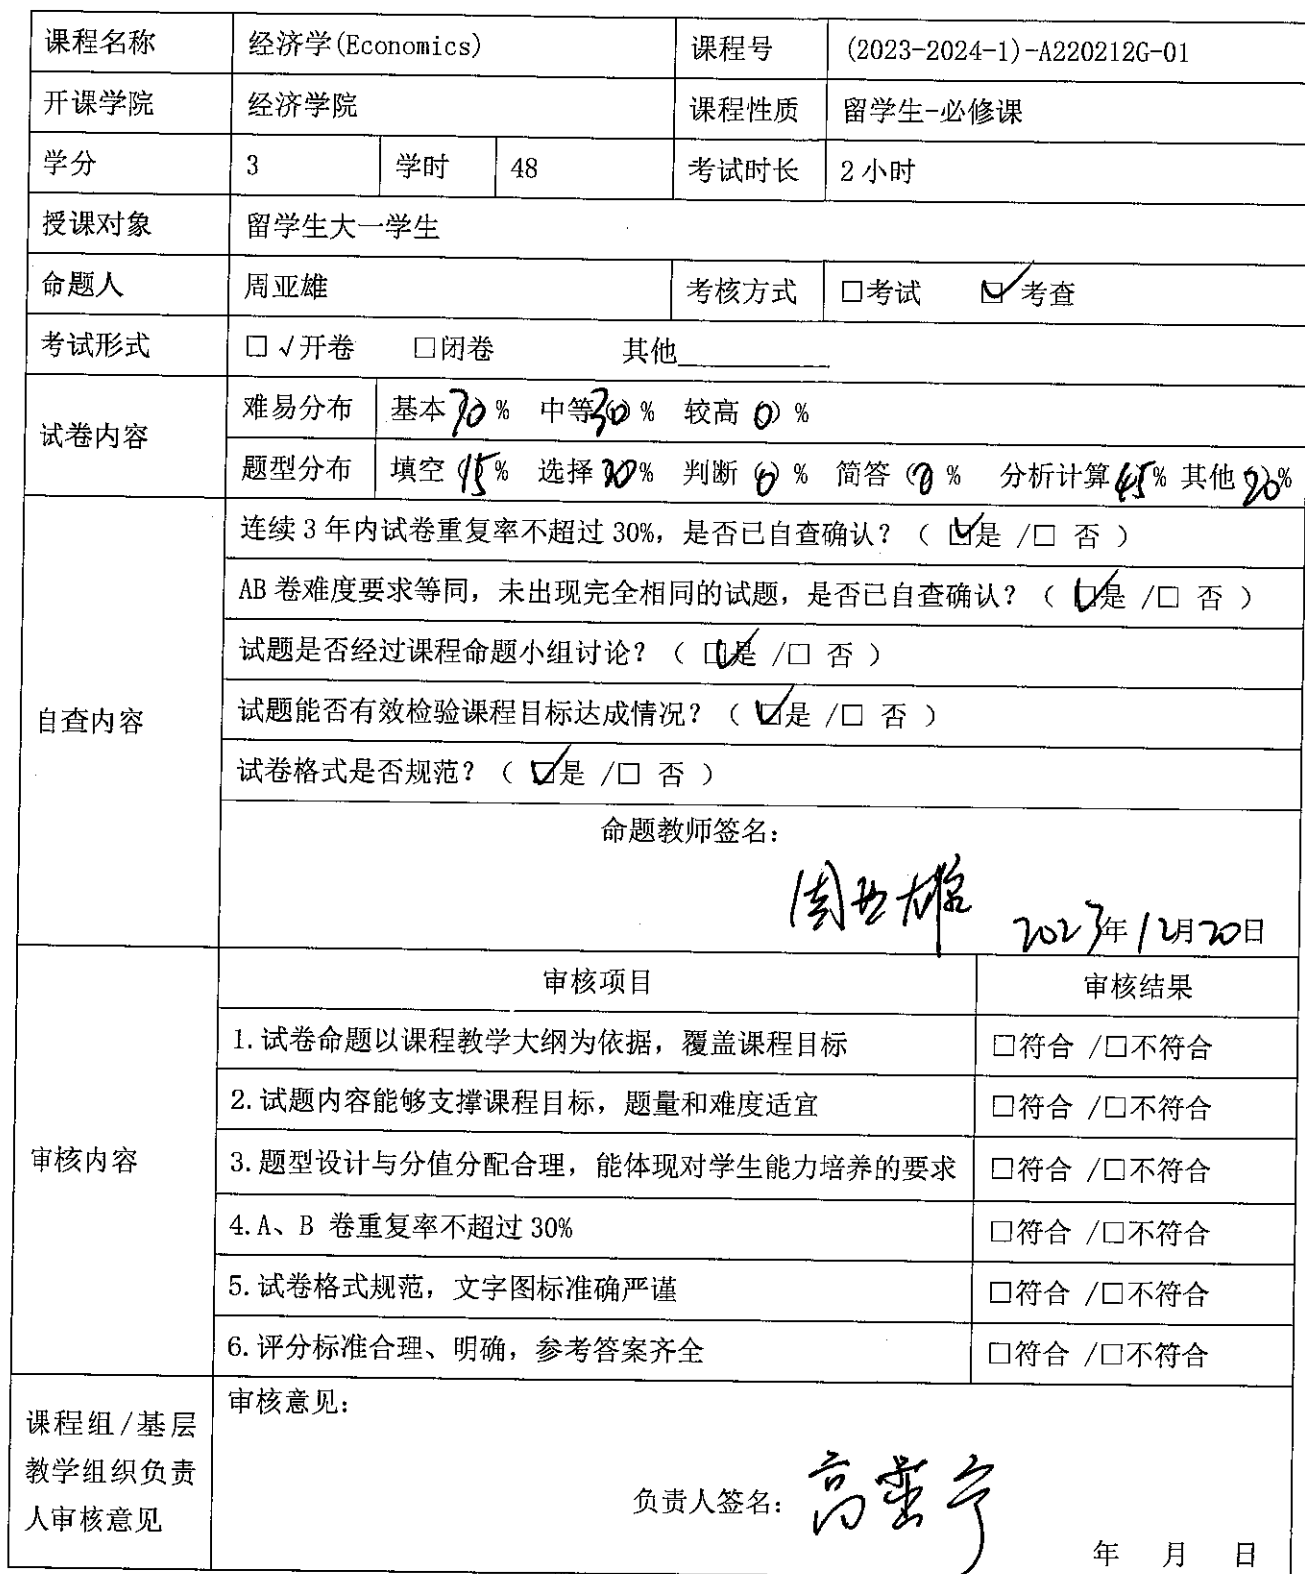 课程名称 经济学(Economics) 课程号 (2023-2024-1)-A220212G-01
开课学院 经济学院 课程性质 留学生-必修课
学分 3 学时 48 考试时长 2小时
授课对象 留学生大一学生
命题人 周亚雄 考核方式 □考试 ☑考查
考试形式 □√开卷 □闭卷 其他________
试卷内容
难易分布 基本(70)% 中等(30)% 较高(0)%
题型分布 填空(15)% 选择(20)% 判断(0)% 简答(0)% 分析计算(45)% 其他(20)%
自查内容
连续3年内试卷重复率不超过30%，是否已自查确认？（ ☑是 /□ 否 ）
AB卷难度要求等同，未出现完全相同的试题，是否已自查确认？（ ☑是 /□ 否 ）
试题是否经过课程命题小组讨论？（ ☑是 /□ 否 ）
试题能否有效检验课程目标达成情况？（ ☑是 /□ 否 ）
试卷格式是否规范？（ ☑是 /□ 否 ）
命题教师签名：
周亚雄 2023年12月20日
审核内容
审核项目 审核结果
1.试卷命题以课程教学大纲为依据，覆盖课程目标 □符合 /□不符合
2.试题内容能够支撑课程目标，题量和难度适宜 □符合 /□不符合
3.题型设计与分值分配合理，能体现对学生能力培养的要求 □符合 /□不符合
4.A、B 卷重复率不超过30% □符合 /□不符合
5.试卷格式规范，文字图标准确严谨 □符合 /□不符合
6.评分标准合理、明确，参考答案齐全 □符合 /□不符合
课程组/基层
教学组织负责
人审核意见
审核意见：
负责人签名：高
年 月 日